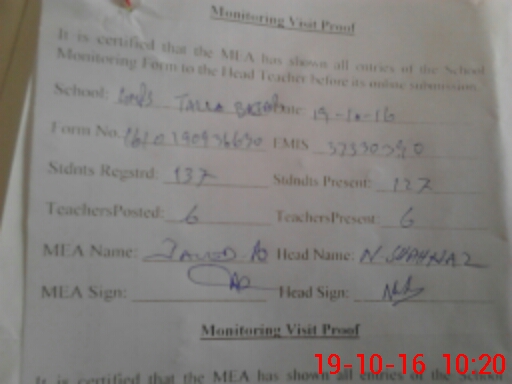 Monitoring Visit Proof
It is certified that the MEA has shown all entries of the School
Monitoring Form to the Head Teacher before its online submission.
School: TALLA Date 19-10-16
Form No. EMIS
Stdnts Regstrd: 137 Stdndts Present: 127
TeachersPosted: 6 TeachersPresent: 6
MEA Name: Head Name: N. SHAHNAZ
MEA Sign: Head Sign:
Monitoring Visit Proof
It is certified that the MEA has shown all entries of the School
19-10-16 10:20